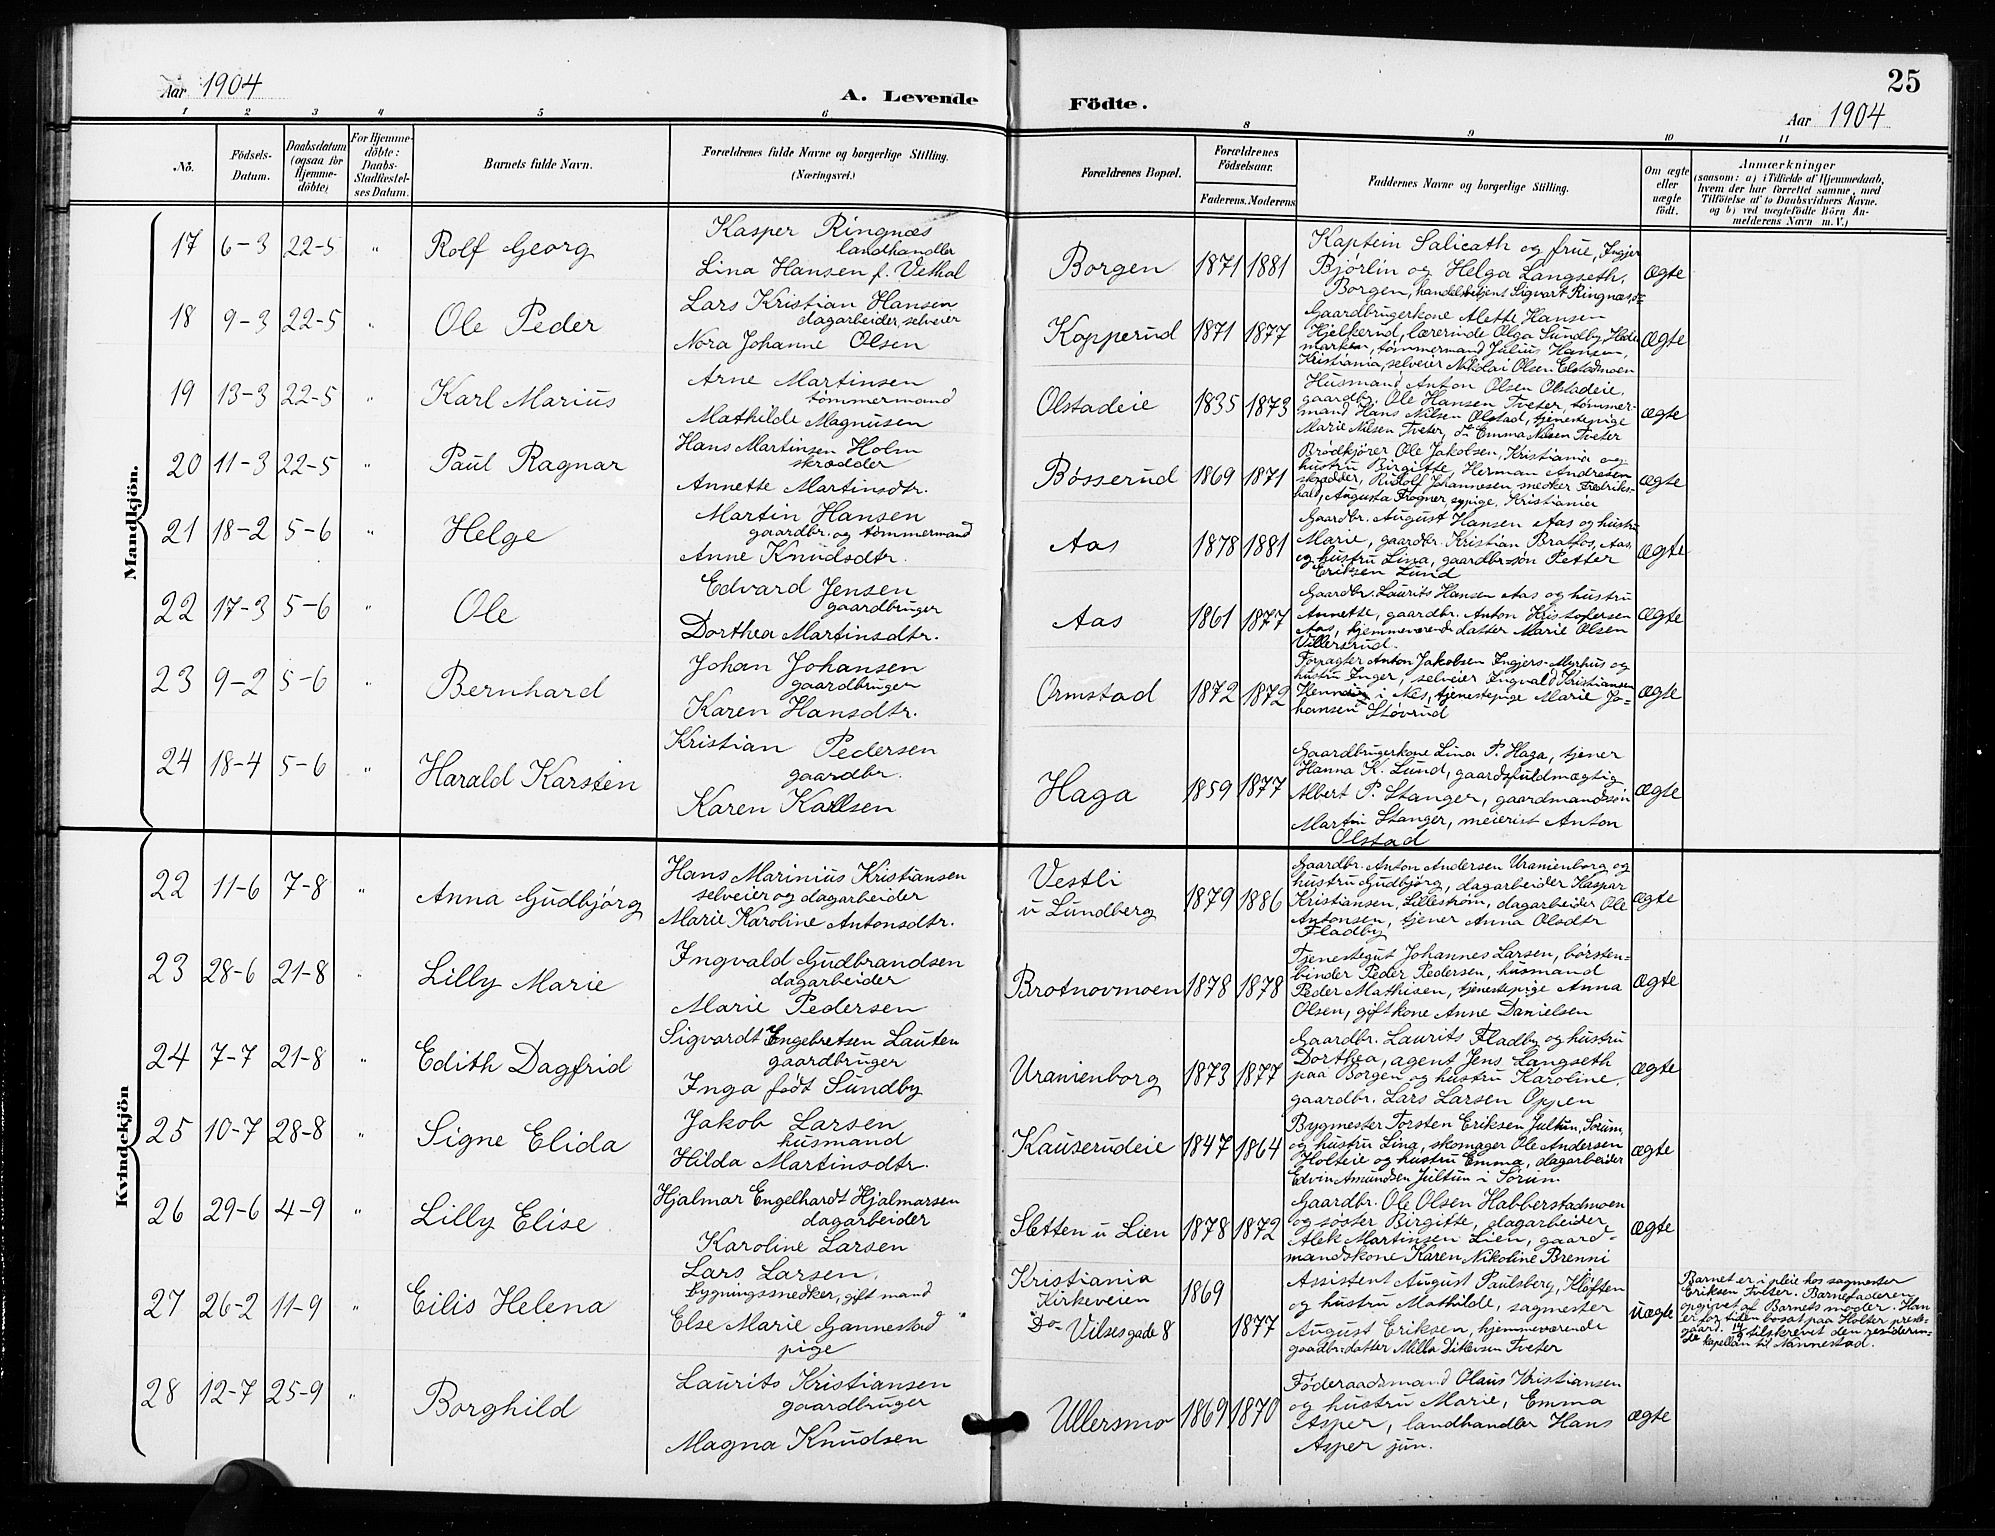 Aar 1904
A. Levende
Födte.
25
Aar 1904
1 2 3 4 5 6 8 9 10 11
No.
Födsels-
Datum.
Daabsdatum
(ogsaa for
Hjemme-
döbte)
For Hjemme-
döbte:
Daabs-
Stadfæstel-
ses Datum.
Barnets fulde Navn.
Forældrenes fulde Navne og borgerlige Stilling.
(Næringsvei.)
Forældrenes Bopæl.
Forældrenes
Födselsaar.
Faderens. Moderens
Faddernes Navne og borgerlige Stilling.
Om ægte
eller
uægte
födt.
Anmærkninger
(saasom: a) i Tilfælde af Hjemmedaab,
hvem der har forrettet samme, med
Tilföielse af to Daabsvidners Navne.
og b) ved uægtefödte Börn An-
melderens Navn m.V.)
Mandkjön.
17 6-3 22-5 " Rolf Georg
Kasper Ringnæs
landhandler
Lina Hansen f. Vethal
Borgen 1871 1881
Kaptein Salicath og frue, Ingjer
Bjørlin og Helga Langseth,
Borgen, handelsbetjent Sigvart Ringnæs, do
ægte
18 9-3 22-5 " Ole Peder
Lars Kristian Hansen
dagarbeider, selveier
Nora Johanne Olsen
Kopperud 1871 1877
Gaardbrugerkone Alette Hansen
Hjelkerud, lærerinde Olga Sundby, Hede
marken, tømmermand Julius Hansen,
Kristiania, selveier Nikolai Olsen Elstadmoen
ægte
19 13-3 22-5 " Karl Marius
Arne Martinsen
tømmermand
Mathilde Magnusen
Olstadeie 1835 1873
Husmand Anton Olsen Olstadeie,
gaardbr. Ole Hansen Tveter, tømmer-
mand Hans Nilsen Olstad, tjenestepige
Marie Nilsen Tveter, do Emma Nilsen Tveter
ægte
20 11-3 22-5 Paul Ragnar
Hans Martinsen Holm
skrædder
Annette Martinsdtr.
Bøsserud 1869 1871
Brødkjører Ole Jakobsen, Kristiania og
hustru Birgitte, Herman Andresen
skrædder, Rudolf Johannesen snedker Fredriks-
hald, Augusta Frogner sypige, Kristiania
ægte
21 18-2 5-6 " Helge
Martin Hansen
gaardbr. og tømmermand
Anne Knudsdtr.
Aas 1878 1881
Gaardbr. August Hansen Aas og hustru
Marie, gaardbr. Kristian Bratfos, Aas,
og hustru Lina, gaardbr-søn Petter
Eriksen Lund
ægte
22 17-3 5-6 " Ole
Edvard Jensen
gaardbruger
Dorthea Martinsdtr.
Aas 1861 1877
Gaardbr. Laurits Hansen Aas og hustru
Annette, gaardbr. Anton Kristofersen
Aas, hjemmeværende datter Marie Olsen
Villersrud.
ægte
23 9-2 5-6 " Bernhard
Johan Johansen
gaardbruger
Karen Hansdtr.
Ormstad 1872 1872
Forpagter Anton Jakobsen Ingjers-Myrhus og
hustru Inger, selveier Ingvald Kristiansen
i Nes, tjenestepige Marie Jo-
hansen Støvrud
ægte
24 18-4 5-6 " Harald Karsten
Kristian Pedersen
gaardbr.
Karen Karlsen
Haga 1859 1877
Gaardbrugerkone Lina P. Haga, tjener
Hanna K. Lund, gaardsfuldmægtig
Albert P. Stanger, gaardmandssøn
Martin Stanger, meierist Anton
Olstad
ægte
Kvindekjön
22 11-6 7-8 " Anna Gudbjørg
Hans Marinius Kristiansen
selveier og dagarbeider
Marie Karoline Antonsdtr.
Vestli
u Lundberg 1879 1886
Gaardbr. Anton Andersen Uranienborg og
hustru Gudbjørg, dagarbeider Kaspar
Kristiansen, Lillestrøm, dagarbeider Ole
Antonsen, tjener Anna Olsdtr
Fladby
ægte
23 28-6 21-8 " Lilly Marie
Ingvald Gudbrandsen
dagarbeider
Marie Pedersen
Brotnovmoen 1878 1878
Tjenestegut Johannes Larsen, børsten-
binder Peder Pedersen, husmand
Peder Mathisen, tjenestepige Anna
Olsen, gift kone Anne Danielsen
ægte
24 7-7 21-8 " Edith Dagfrid
Sigvardt Engebretsen Lauten
gaardbruger
Inga født Sundby
Uranienborg 1873 1877
Gaardbr. Laurits Fladby og hustru
Dorthea, agent Jens Langseth
paa Borgen og hustru Karoline,
gaardbr. Lars Larsen Oppen
ægte
25 10-7 28-8 " Signe Elida
Jakob Larsen
husmand
Hilda Martinsdtr.
Kauserudeie 1847 1864
Bygmester Torsten Eriksen Jultun, Sørum,
og hustru Lina, skomager Ole Andersen
Holteie og hustru Emma, dagarbeider
Edvin Amundsen Jultun i Sørum.
ægte
26 29-6 4-9 " Lilly Elise
Hjalmar Engelhardt Hjalmarsen
dagarbeider
Karoline Larsen
Sletten u Lien 1878 1872
Gaardbr. Ole Olsen Habberstadmoen
og søster Birgitte, dagarbeider
Alek Martinsen Lien, gaard-
mandskone Karen Nikoline Brenni
ægte
27 26-2 11-9 Eilis Helena
Lars Larsen,
bygningssnedker, gift mand
Else Marie Gannestad "
pige
Kristiania
Kirkeveien 1869
Do Vilsesgade 8 1877
Assistent August Paulsberg, Kløften
og hustru Mathilde, sagmester
August Eriksen, hjemmeværende
gaardbr-datter Milla Ditlevsen Tveter
uægte
Barnet er i pleie hos sagmester
Eriksen Tveter. Barnefaderen
opgivet af Barnets moder. Han
er for tiden bosat paa Holter preste-
gaard. 14/9 tilskrevet den resideren-
de kapellan til Nannestad.
28 12-7 25-9 " Borghild
Laurits Kristiansen
gaardbruger
Magna Knudsen
Ullersmo 1869 1870
Føderaadsmand Olaus Kristiansen
og hustru Marie, Emma
Asper, landhandler Hans
Asper jun.
ægte